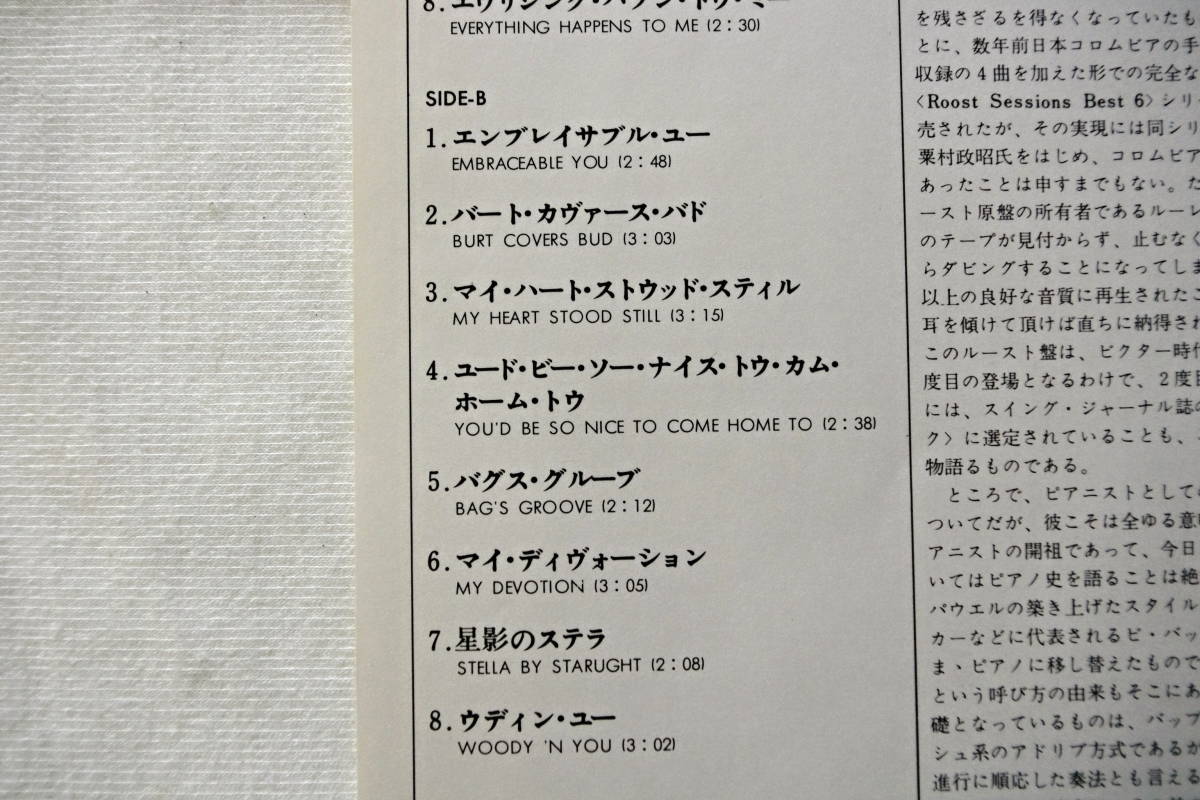 8.エヴリシング・ハプン・トウ・ミー
EVERYTHING HAPPENS TO ME (2:30)
SIDE-B
1.エンブレイサブル・ユー
EMBRACEABLE YOU (2:48)
2.バート・カヴァース・バド
BURT COVERS BUD (3:03)
3.マイ・ハート・ストウッド・スティル
MY HEART STOOD STILL (3:15)
4.ユード・ビー・ソー・ナイス・トウ・カム・
ホーム・トウ
YOU'D BE SO NICE TO COME HOME TO (2:38)
5.バグス・グルーブ
BAG'S GROOVE (2:12)
6.マイ・ディヴォーション
MY DEVOTION (3:05)
7.星影のステラ
STELLA BY STARUGHT (2:08)
8.ウディン・ユー
WOODY 'N YOU (3:02)
を残さざるを得なくなっていたも
とに、数年前日本コロムビアの手
収録の4曲を加えた形での完全な
〈Roost Sessions Best 6〉シリ
売されたが、その実現には同シリ
粟村政昭氏をはじめ、コロムビア
あったことは申すまでもない。た
ースト原盤の所有者であるルーレ
のテープが見付からず、止むなく
らダビングすることになってしま
以上の良好な音質に再生されたこ
耳を傾けて頂けば直ちに納得され
このルースト盤は、ビクター時代
度目の登場となるわけで、2度目
には、スイング・ジャーナル誌の
ク〉に選定されていることも、
物語るものである。
ところで、ピアニストとしての
ついてだが、彼こそは全ゆる意味
アニストの開祖であって、今日
いてはピアノ史を語ることは絶
パウエルの築き上げたスタイル
カーなどに代表されるビ・バッ
ま、ピアノに移し替えたもので
という呼び方の由来もそこにあ
礎となっているものは、バップ
シュ系のアドリブ方式であるか
進行に順応した奏法とも言える